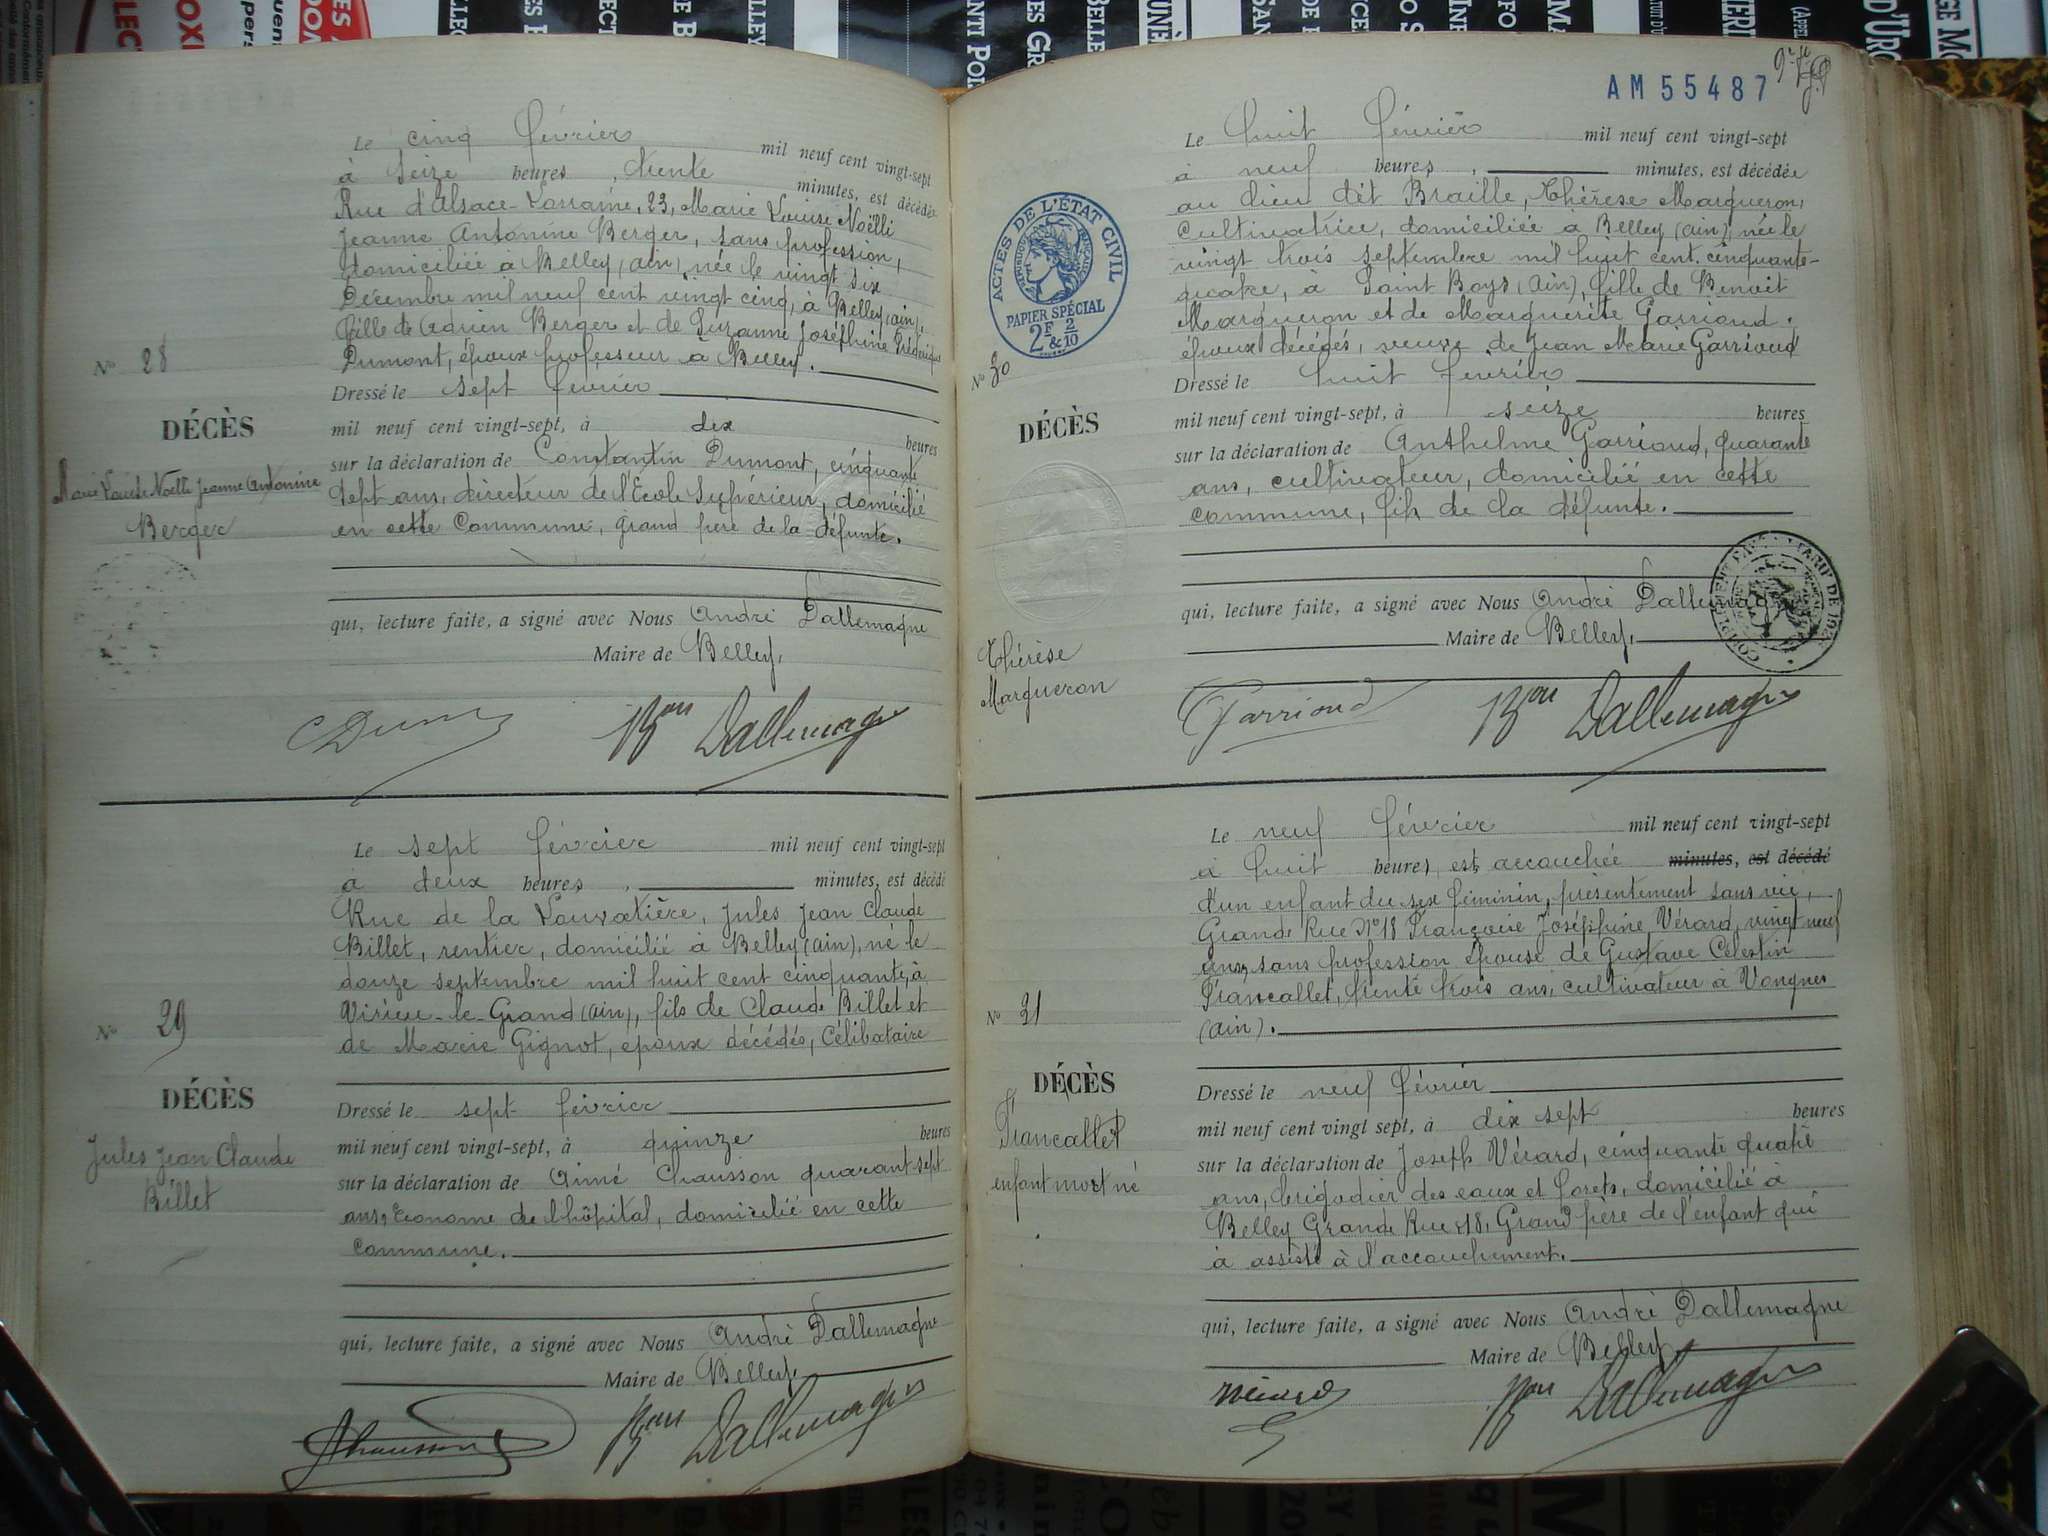 Le cinq février mil neuf cent vingt-sept
à seize heures, trente minutes, est décédée
Rue d'Alsace-Lorraine, 23, Marie Louise Noëlli
Jeanne Antonine Berger, sans profession,
domiciliée à Belley (ain), née le vingt six
Décembre mil neuf cent vingt cinq, à Belley (ain),
fille de Adrien Berger et de Suzanne Joséphine Frédérique
Dumont, époux professeur à Belley.
Dressé le sept février
mil neuf cent vingt-sept, à dix heures
sur la déclaration de Constantin Dumont, cinquante
sept ans, directeur de l'Ecole Supérieur, domicilié
en cette Commune, grand père de la défunte.
qui, lecture faite, a signé avec Nous André Dallemagne
Maire de Belley,
C Dum
Bon Dallemagne
No 28
DÉCÈS
Marie Louise Noëlle Jeanne Antonine
Berger
Le sept février mil neuf cent vingt-sept
à deux heures, minutes, est décédé
Rue de la Louvatière, Jules Jean Claude
Billet, rentier, domicilié à Belley (ain), né le
douze septembre mil huit cent cinquante, à
Virieu-le-Grand (ain), fils de Claude Billet et
de Marie Gignot, epoux décédés, Célibataire
Dressé le sept février
mil neuf cent vingt-sept, à quinze heures
sur la déclaration de Aimé Chausson quarant-sept
ans, Econome de l'hôpital, domicilié en cette
commune.
qui, lecture faite, a signé avec Nous André Dallemagne
Maire de Belley,
Chausson
Bon Dallemagne
No 29
DÉCÈS
Jules Jean Claude
Billet
AM 55487
Le huit février mil neuf cent vingt-sept
à neuf heures, minutes, est décédée
au lieu dit Braille, Thérèse Marqueron,
Cultivatrice, domiciliée à Belley (ain), née le
vingt trois septembre mil huit cent cinquante-
quatre, à Saint Boys (ain), fille de Benoit
Marqueron et de Marguerite Garrioud,
époux décédés, veuve de Jean Marie Garrioud
Dressé le huit février
mil neuf cent vingt-sept, à seize heures
sur la déclaration de Anthelme Garrioud, quarante
ans, cultivateur, domicilié en cette
commune, fils de la défunte.
qui, lecture faite, a signé avec Nous André Dallemagne
Maire de Belley,
Garrioud
Bon Dallemagne
ACTES DE L'ÉTAT CIVIL
PAPIER SPÉCIAL
2F & 2/10
No 30
DÉCÈS
Thérèse
Marqueron
Le neuf février mil neuf cent vingt-sept
à huit heures, est accouchée minutes, est décédé
d'un enfant du sex féminin, présentement sans vie,
Grande Rue No 18 Françoise Joséphine Vérard, vingt neuf
ans, sans profession épouse de Gustave Célestin
Francallet, trente trois ans, cultivateur à Vongnes
(ain).
Dressé le neuf février
mil neuf cent vingt sept, à dix sept heures
sur la déclaration de Joseph Vérard, cinquante quatre
ans, brigadier des eaux et forets, domicilié à
Belley Grande Rue 18, Grand père de l'enfant qui
à assisté à l'accouchement.
qui, lecture faite, a signé avec Nous André Dallemagne
Maire de Belley
Vérard
Bon Dallemagne
No 31
DÉCÈS
Francallet
enfant mort né